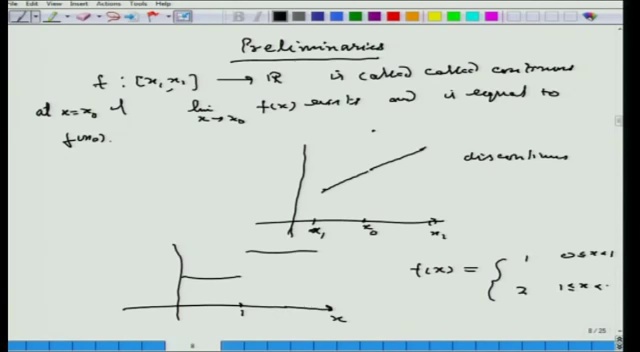 File Edit View Insert Actions Tools Help
Preliminaries
f : [x₁, x₁] → ℝ is called called continuous
at x=x₀ if lim x→x₀ f(x) exists and is equal to
f(x₀).
discontinuous
x₁ x₀ x₂
f(x) = { 1 0≤x<1
2 1≤x<
1 x
8 / 25
8